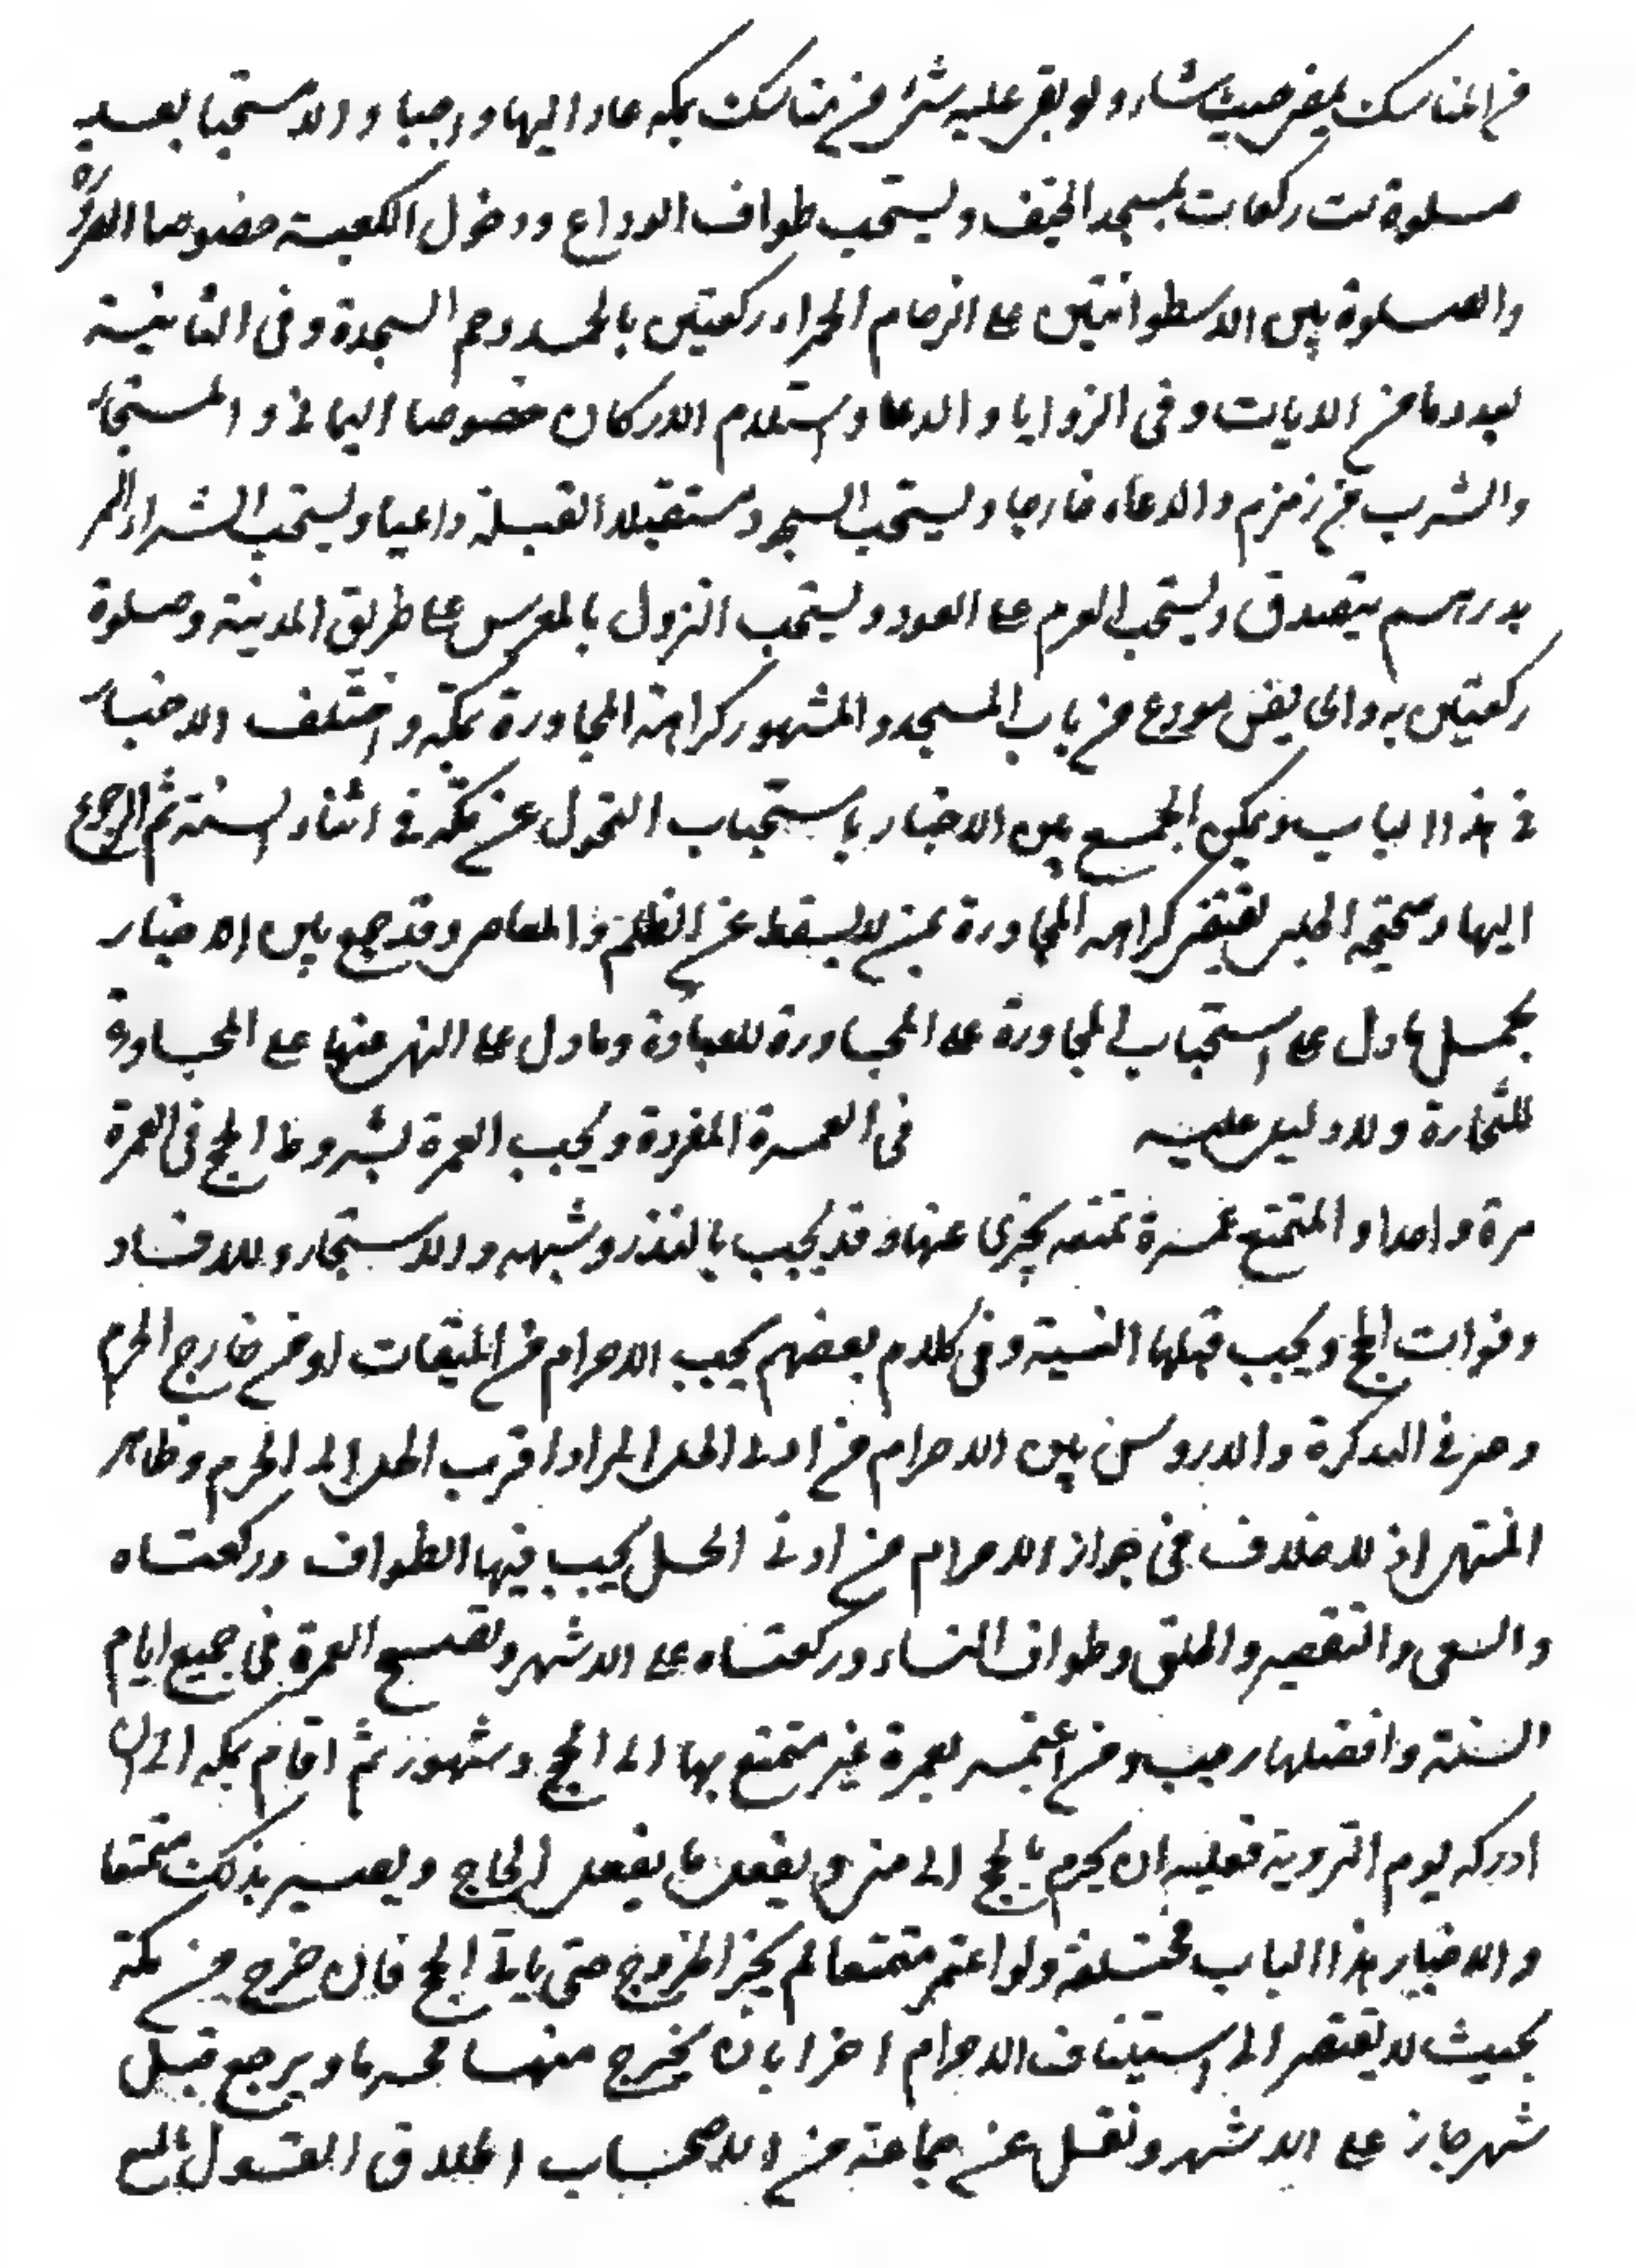 من المناسك يمضي حيث شاء ولو بقي عليه شيء من مناسك بمكة عاد إليها وجوبا والا مستحبا بعد
صلوة ست ركعات بمسجد الخيف ويستحب طواف الوداع ودخول الكعبة خصوصا الصرورة
والصلوة بين الاسطوانتين على الرخام الحمراء ركعتين بالحمد وحم السجدة وفي الثانية
بعددها من الايات وفي الزوايا والدعا واستلام الاركان خصوصا اليماني و المستجار
والشرب من زمزم والدعاء خارجا ويستحب السجود مستقبلا القبلة داعيا ويستحب الشراء التمر
بدرهم يتصدق ويستحب العزم على العود ويستحب النزول بالمعرس على طريق المدينة وصلوة
ركعتين به والحايض تودع من باب المسجد والمشهور كراهة المجاورة بمكة واختلف الاخبار
في هذا الباب ويمكن الجمع بين الاخبار باستحباب التحول عن مكة في اثناء السنة ثم الرجوع
اليها وصحيحة الحلبي يقتضي كراهة المجاورة بمن لا يسقط عن الظلم والمعاصي وقد جمع بين الاخبار
بحمل ما دل على استحباب المجاورة على المجاورة للعبادة وما دل على النهي عنها على المجاورة
للتجارة ولا دليل عليه في العمرة المفردة ويجب العمرة بشروط الحج في العمرة
مرة واحدا و المتمتع عمرة تمتعه يجزي عنها وقد يجب بالنذر وشبهه والاستيجار وللافساد
وفوات الحج ويجب قبلها النية وفي كلام بعضهم يجب الاحرام من الميقات او من خارج الحرم
وخير في التذكرة والدروس بين الاحرام من ادنى الحل المراد اقرب الحل الى الحرم وظاهر
المنتهى انه لا خلاف في جواز الاحرام من ادنى الحل يجب فيها الطواف وركعتاه
والسعي والتقصير والحلق وطواف النساء وركعتاه على الاشهر وتصح العمرة في جميع ايام
السنة وافضلها رجب ومن اعتمر بعمرة غير متمتع بها الى الحج في شهور ثم اقام بمكة الى ان
ادركه يوم التروية فعليه ان يحرم بالحج الى منى ويفعل ما يفعل الحاج ويصير بذلك متمتعا
والاخبار هذا الباب مختلفة ولو اعتمر متمتعا لم يجز الخروج حتى ياتي الحج فان خرج من مكة
بحيث لا يفتقر الى استيناف الاحرام اخر بان يخرج منها محرما ويرجع قبل
شهر جاز على الاشهر ونقل عن جماعة من الاصحاب اطلاق القول بالمنع